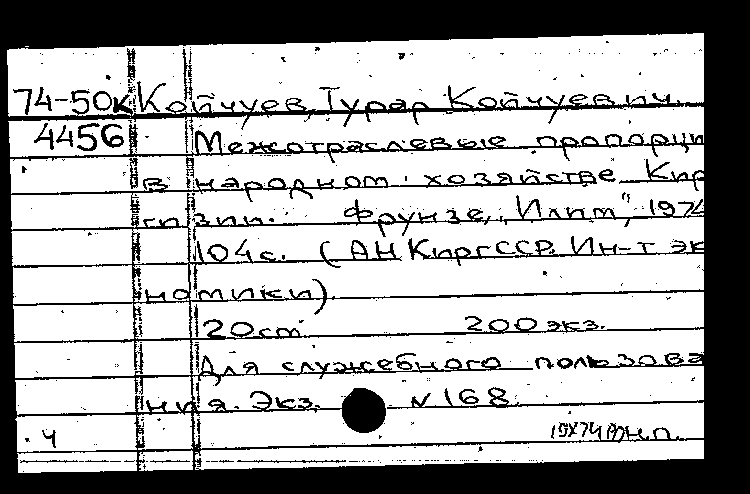 74-50к Койчуев, Турар Койчуевич.
4456 Межотраслевые пропорци
в народном хозяйстве Кир
гизии. Фрунзе, "Илим", 1974
104с. (АН КиргССР. Ин-т эк
номики)
20см 200 экз.
Для служебного пользова
ния. Экз. N 168
4 н.п.